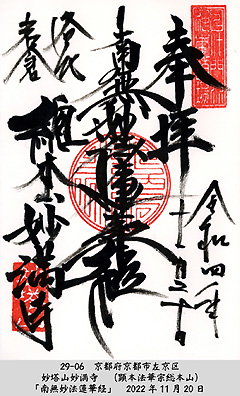 奉拝
令和四年
十一月二十日
南無妙法蓮華経
洛北
岩倉
総本山妙満寺
29-06 京都府京都市左京区
妙塔山妙満寺 (顕本法華宗総本山)
「南無妙法蓮華経」 2022年11月20日